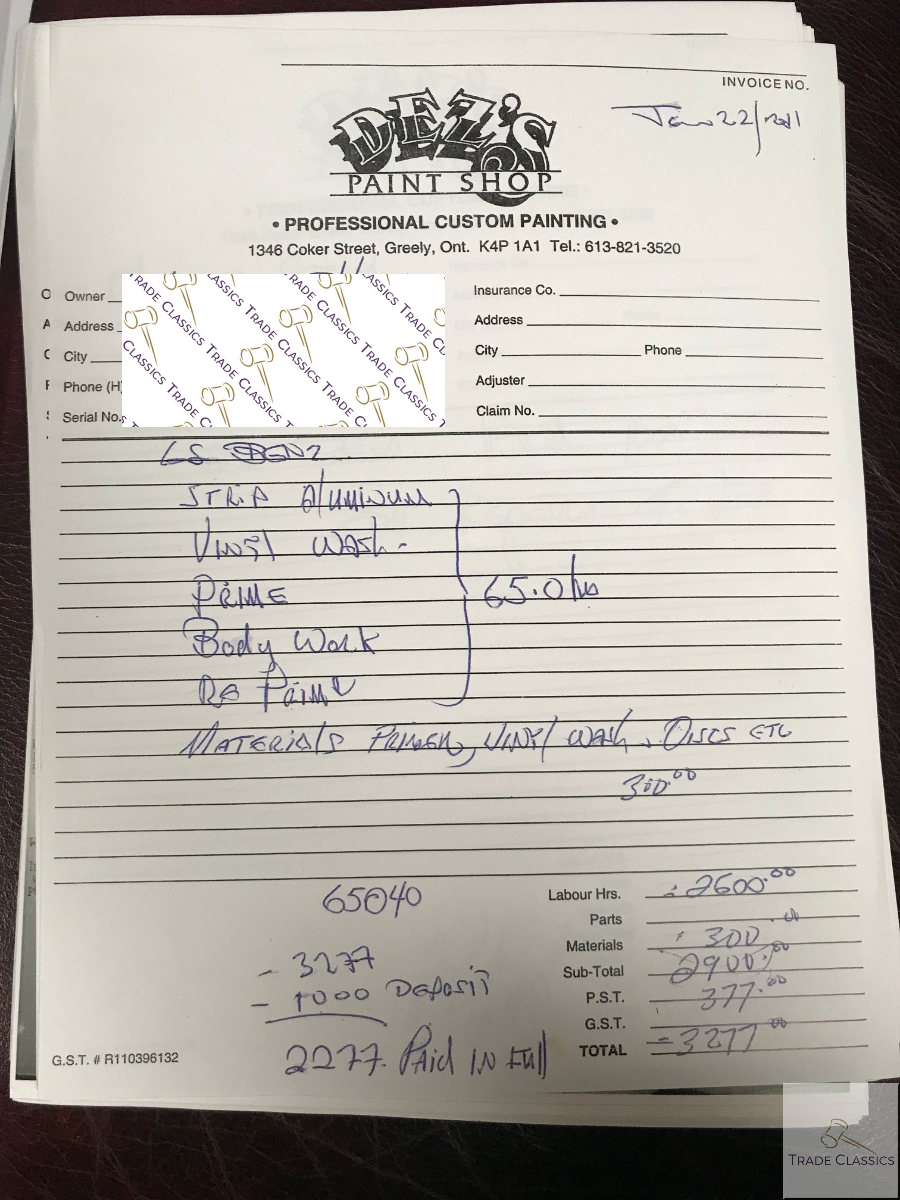 INVOICE NO.
Jan 22/2011
DEZ'S
PAINT SHOP
• PROFESSIONAL CUSTOM PAINTING •
1346 Coker Street, Greely, Ont. K4P 1A1 Tel.: 613-821-3520
Owner
Address
City
Phone (H)
Serial No.
Insurance Co.
Address
City Phone
Adjuster
Claim No.
TRADE CLASSICS TRADE CLASSICS TRADE CLASSICS
STRIP ALUMINUM
VINYL WASH -
PRIME
65.0 hrs
Body Work
RE PRIME
MATERIALS PRIMER, VINYL WASH, DISCS ETC
300.00
65@40
Labour Hrs. 2600.00
Parts
Materials 300.00
Sub-Total 2900.00
P.S.T. 377.00
G.S.T.
TOTAL 3277.00
- 3277
- 1000 DEPOSIT
2277. PAID IN FULL
G.S.T. # R110396132
TRADE CLASSICS